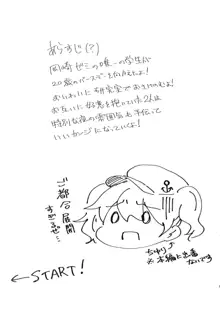 あらすじ(?)
岡崎ゼミの唯一の学生が
20歳のバースデーをむかえたよ!
おいわいに研究室でおさけのむよ!
お互いに好意を抱いていた2人は
特別な夜の雰囲気も手伝って
いいかーんじになっていくよ!
ご都合展開
すぎるぜ…
ちゆり
※本編に出番
ないです
←START!